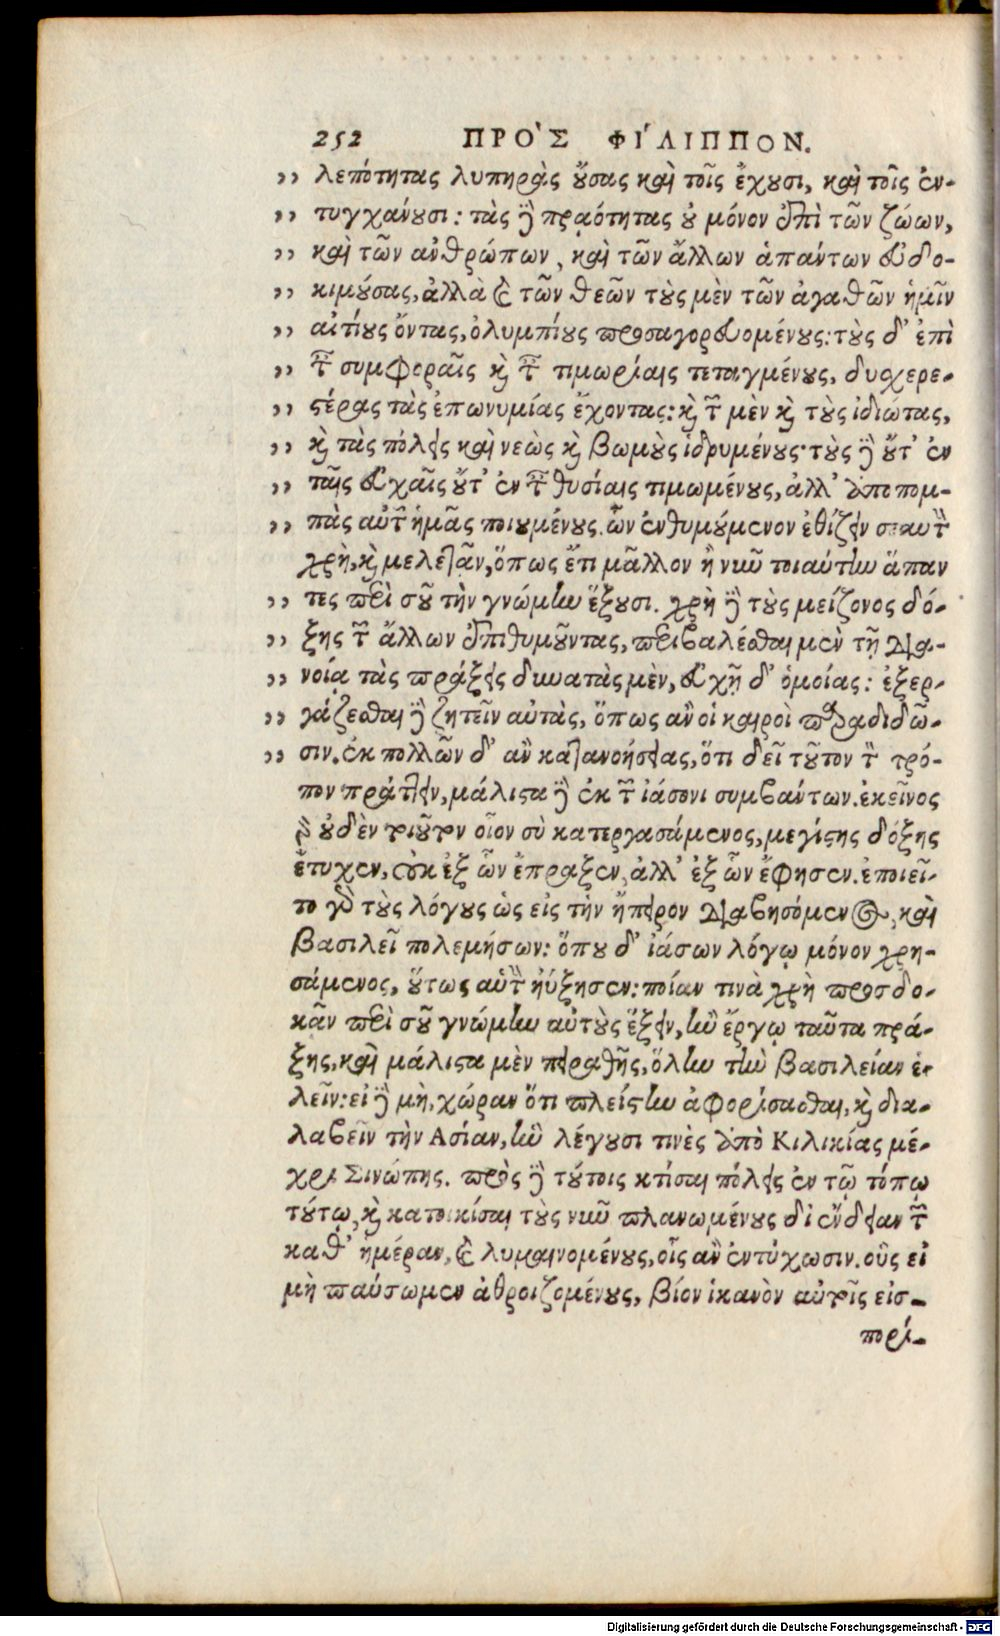 252 ΠΡΟ'Σ ΦΙ'ΛΙΠΠΟΝ.
,, λεπότητας λυπηρὰς οὔσας καὶ τοῖς ἔχουσι, καὶ τοῖς ἐν-
,, τυγχάνουσι: τὰς δὲ πραότητας οὐ μόνον ἐπὶ τῶν ζώων,
,, καὶ τῶν ἀνθρώπων, καὶ τῶν ἄλλων ἁπάντων εὐδο-
,, κιμούσας, ἀλλὰ καὶ τῶν θεῶν τοὺς μὲν τῶν ἀγαθῶν ἡμῖν
,, αἰτίους ὄντας, ὀλυμπίους προσαγορευομένους: τοὺς δ' ἐπὶ
,, ταῖς συμφοραῖς καὶ ταῖς τιμωρίαις τεταγμένους, δυσχερε-
,, στέρας τὰς ἐπωνυμίας ἔχοντας: καὶ τῶν μὲν καὶ τοὺς ἰδιώτας,
,, καὶ τὰς πόλεις καὶ νεὼς καὶ βωμοὺς ἱδρυμένους· τοὺς δὲ οὔτ' ἐν
,, ταῖς εὐχαῖς οὔτ' ἐν ταῖς θυσίαις τιμωμένους, ἀλλ' ἀποπομ-
,, πὰς αὐτῶν ἡμᾶς ποιουμένους. ὧν ἐνθυμούμενον ἐθίζειν σεαυτὸν
χρὴ, καὶ μελετᾶν, ὅπως ἔτι μᾶλλον ἢ νῦν τοιαύτην ἅπαν
,, τες περὶ σοῦ τὴν γνώμην ἕξουσι. χρὴ δὲ τοὺς μείζονος δό-
,, ξης τῶν ἄλλων ἐπιθυμοῦντας, περιβαλέσθαι μὲν τῇ δια-
,, νοίᾳ τὰς πράξεις δυνατὰς μὲν, εὐχῇ δ' ὁμοίας: ἐξερ-
,, γάζεσθαι δὲ ζητεῖν αὐτὰς, ὅπως ἂν οἱ καιροὶ παραδιδῶ-
,, σιν. ἐκ πολλῶν δ' ἂν κατανοήσειας, ὅτι δεῖ τοῦτον τὸν τρό-
πον πράττειν, μάλιστα δὲ ἐκ τῶν ἰάσονι συμβάντων. ἐκεῖνος
γὰρ οὐδὲν τοιοῦτον οἷον σὺ κατεργασάμενος, μεγίστης δόξης
ἔτυχεν, οὐκ ἐξ ὧν ἔπραξεν, ἀλλ' ἐξ ὧν ἔφησεν. ἐποιεῖ-
το γὰρ τοὺς λόγους ὡς εἰς τὴν ἤπειρον διαβησόμενος, καὶ
βασιλεῖ πολεμήσων: ὅπου δ' ἰάσων λόγῳ μόνον χρη-
σάμενος, οὕτως αὑτὸν ηὔξησεν: ποίαν τινὰ χρὴ προσδο-
κᾶν περὶ σοῦ γνώμην αὐτοὺς ἕξειν, ἢν ἔργῳ ταῦτα πρά-
ξης, καὶ μάλιστα μὲν πειραθῇς, ὅλην τὴν βασιλείαν ἑ-
λεῖν: εἰ δὲ μὴ, χώραν ὅτι πλείστην ἀφορίσασθαι, καὶ δια-
λαβεῖν τὴν Ασίαν, ἢν λέγουσι τινὲς ἀπὸ Κιλικίας μέ-
χρι Σινώπης. πρὸς δὲ τούτοις κτίσαι πόλεις ἐν τῷ τόπῳ
τούτῳ, καὶ κατοικίσαι τοὺς νῦν πλανωμένους δι' ἔνδειαν τῶν
καθ' ἡμέραν, καὶ λυμαινομένους, οἷς ἂν ἐντύχωσιν. οὓς εἰ
μὴ παύσωμεν ἀθροιζομένους, βίον ἱκανὸν αὐτοῖς εἰσ-
πορί-
Digitalisierung gefördert durch die Deutsche Forschungsgemeinschaft - DFG